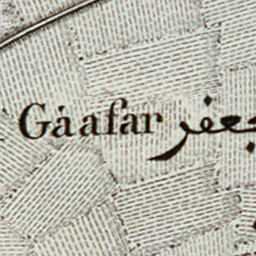 Gȧafar جعفر